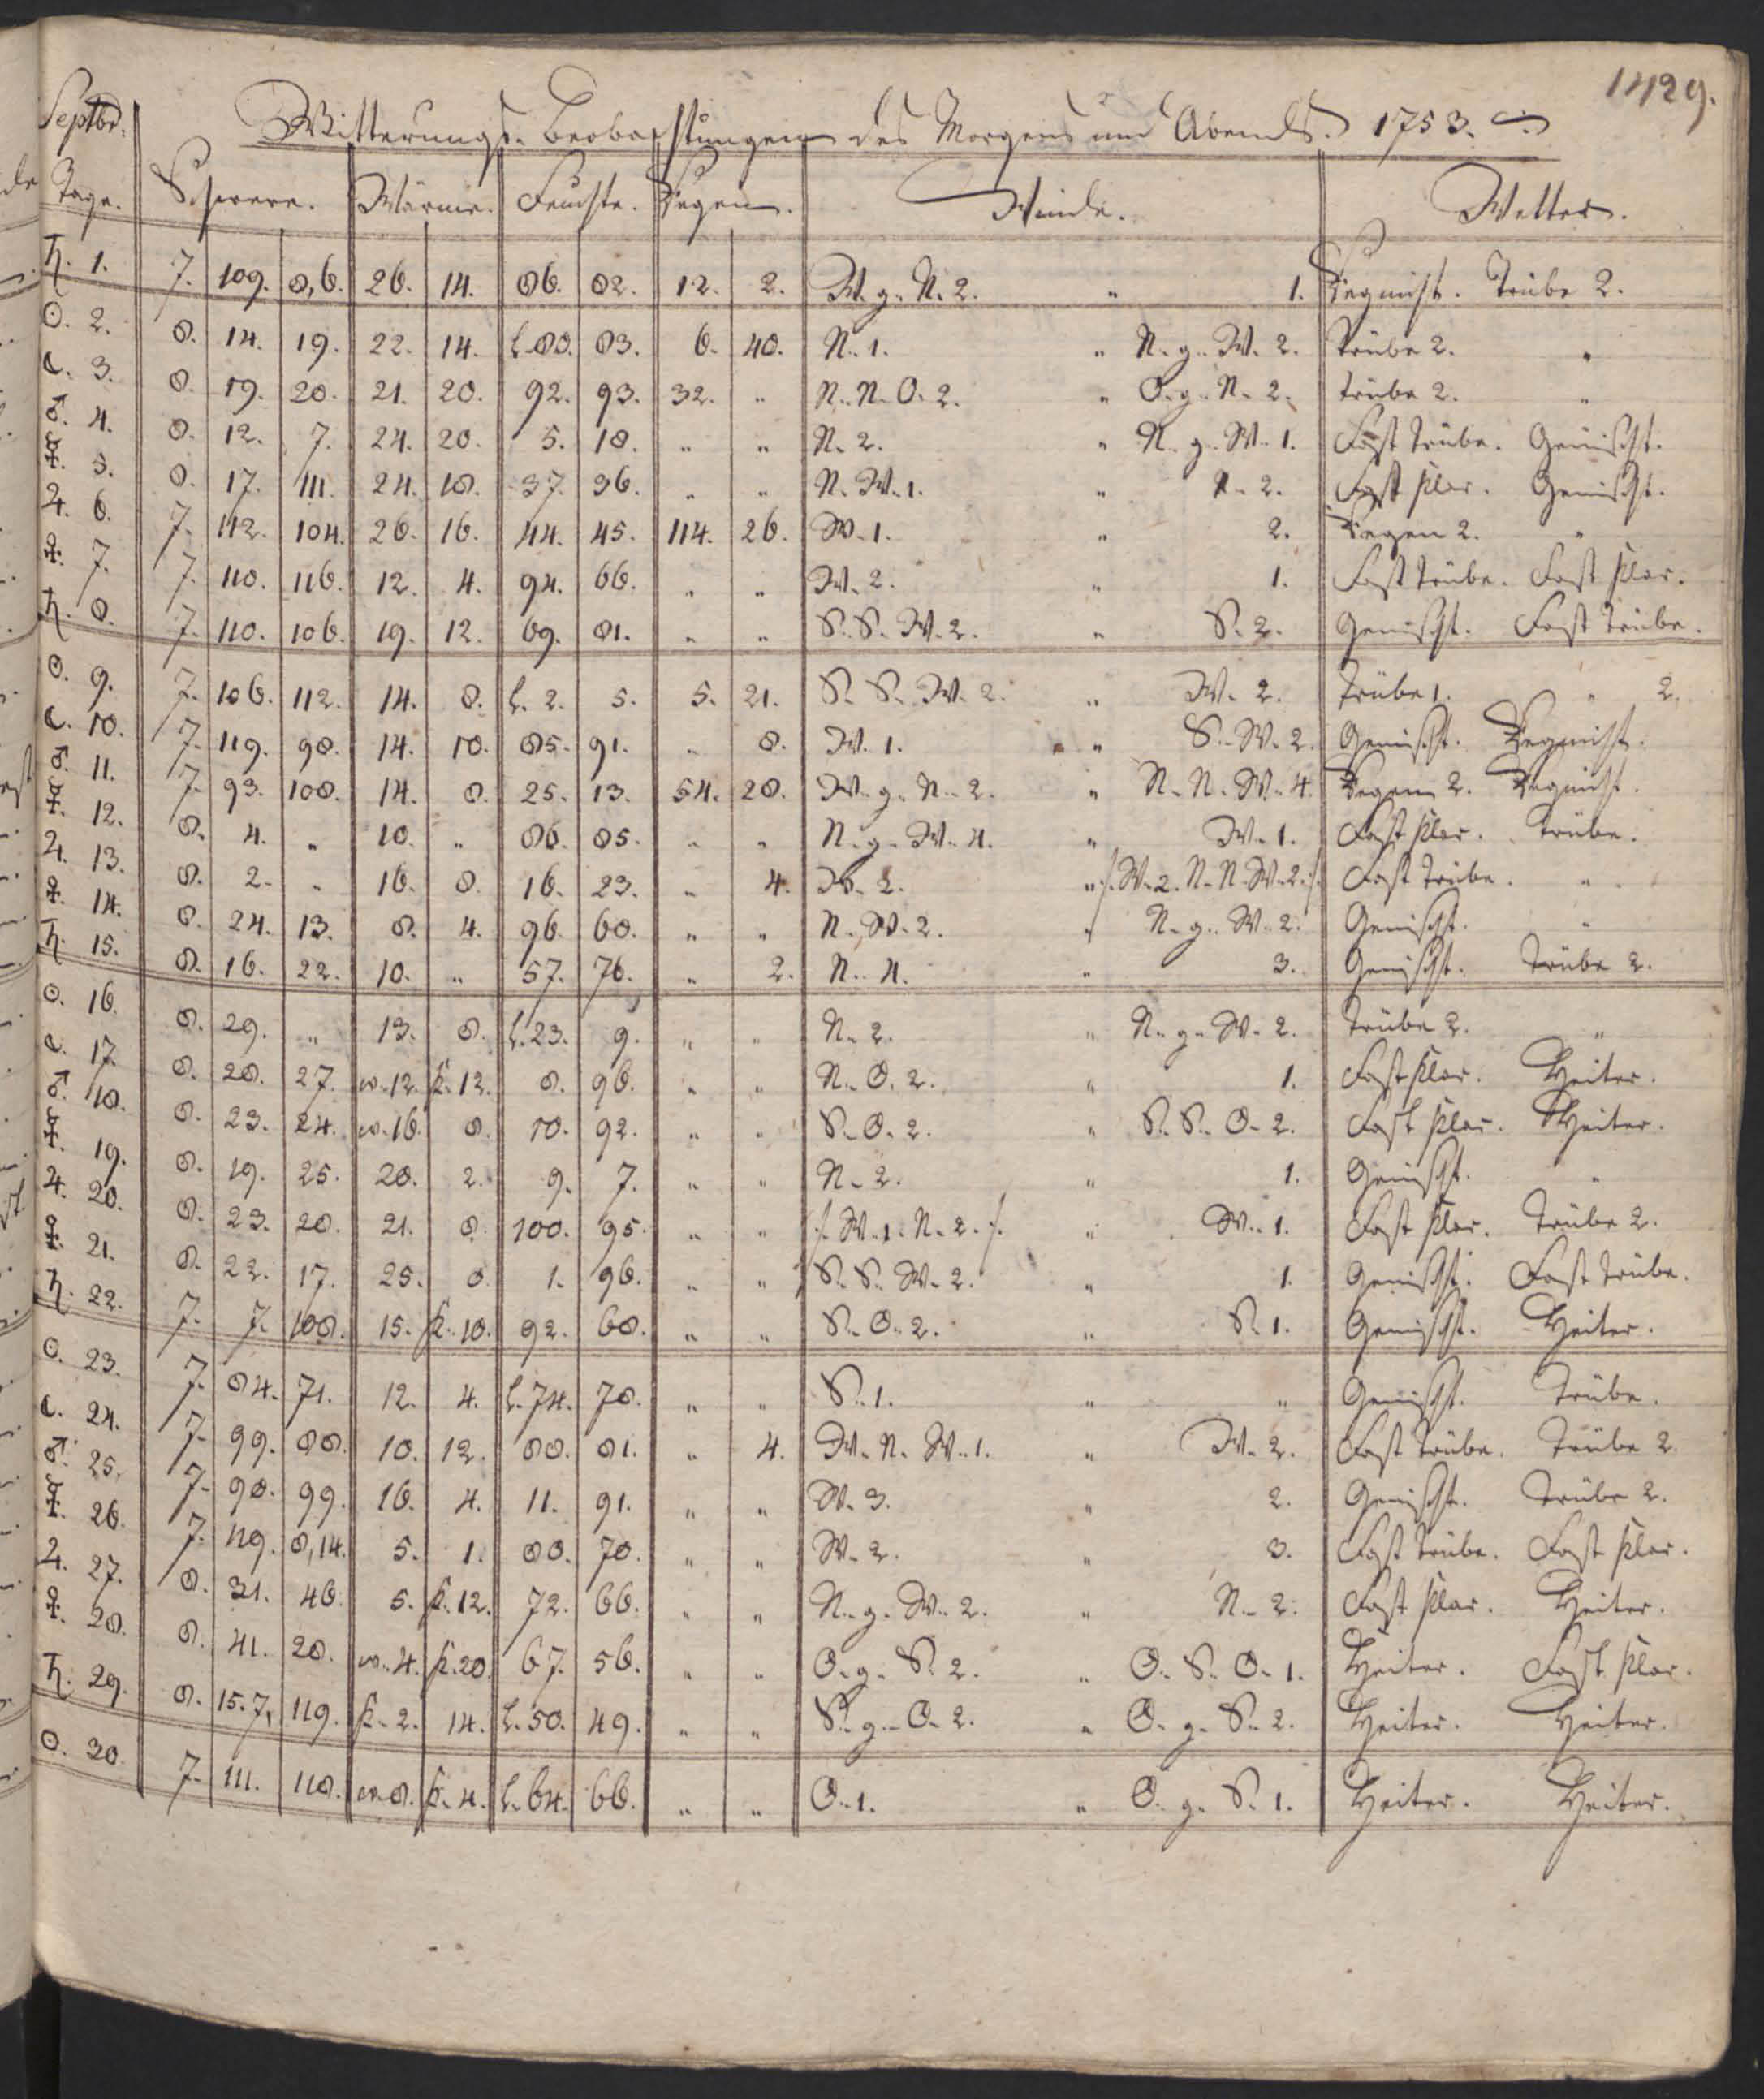 1429.
Septbr. Witterungs-Beobachtungen des Morgens und Abends. 1753.
Tage. Schwere. Wärme. Feuchte. Regen. Winde. Wetter.
♄. 1. 7. 109. 8,6. 26. 14. 86. 82. 12. 2. W. g. N. 2. " 1. Regnicht. Trübe 2.
☉. 2. 8. 14. 19. 22. 14. L. 80. 83. 6. 40. N. 1. " N. g. W. 2. Trübe 2. "
☾. 3. 8. 19. 20. 21. 20. 92. 93. 32. " N. N. O. 2. " O. g. N. 2. Trübe 2. "
♂. 4. 8. 12. 7. 24. 20. 5. 18. " " N. 2. " N. g. W. 1. Fast Trübe. Gemischt.
☿. 5. 8. 17. 111. 24. 18. 37. 36. " " N. W. 1. " 2. Fast klar. Gemischt.
♃. 6. 7. 112. 104. 26. 16. 44. 45. 114. 26. W. 1. " 2. Regen 2. "
♀. 7. 7. 110. 116. 12. 4. 94. 66. " " W. 2. " 1. Fast Trübe. Fast klar.
♄. 8. 7. 110. 106. 19. 12. 69. 81. " " S. S. W. 2. " S. 2. Gemischt. Fast Trübe.
☉. 9. 7. 106. 112. 14. 8. L. 2. 5. 5. 21. S. S. W. 2. " W. 2. Trübe 1. " 2.
☾. 10. 7. 119. 98. 14. 10. 85. 91. " 8. W. 1. " S. W. 2. Gemischt. Regnicht.
♂. 11. 7. 93. 108. 14. 8. 25. 13. 54. 28. W. g. N. 2. " N. N. W. 4. Regen 2. Regnicht.
☿. 12. 8. 4. " 10. " 86. 85. " " N. g. W. 4. " W. 1. Fast klar. Trübe.
♃. 13. 8. 2. " 16. 8. 16. 23. " 4. W. 2. " /. W. 2. N. N. W. 2. /. Fast Trübe. "
♀. 14. 8. 24. 13. 8. 4. 96. 60. " " N. W. 2. " N. g. W. 2. Gemischt. "
♄. 15. 8. 16. 22. 10. " 57. 76. " 2. N. 4. " 3. Gemischt. Trübe 2.
☉. 16. 8. 29. " 13. 8. L. 23. 9. " " N. 2. " N. g. W. 2. Trübe 2. "
☾. 17. 8. 28. 27. w. 12. k. 12. 8. 96. " " N. O. 2. " 1. Fast klar. Heiter.
♂. 18. 8. 23. 24. w. 16. 8. 10. 92. " " S. O. 2. " S. S. O. 2. Fast klar. Heiter.
☿. 19. 8. 19. 25. 20. 2. 9. 7. " " N. 2. " 1. Gemischt. "
♃. 20. 8. 23. 20. 21. 8. 100. 95. " " /. W. 1. N. 2. /. " W. 1. Fast klar. Trübe 2.
♀. 21. 8. 22. 17. 25. 8. 1. 96. " " S. S. W. 2. " 1. Gemischt. Fast Trübe.
♄. 22. 7. 7. 108. 15. k. 10. 92. 60. " " S. O. 2. " S. 1. Gemischt. Heiter.
☉. 23. 7. 84. 71. 12. 4. L. 74. 78. " " S. 1. " " Gemischt. Trübe.
☾. 24. 7. 99. 88. 10. 12. 80. 81. " 4. W. N. W. 1. " W. 2. Fast Trübe. Trübe 2.
♂. 25. 7. 98. 99. 16. 4. 11. 91. " " W. 3. " 2. Gemischt. Trübe 2.
☿. 26. 7. 119. 8,14. 5. 1. 80. 70. " " W. 2. " 3. Fast Trübe. Fast klar.
♃. 27. 8. 31. 46. 5. k. 12. 72. 66. " " N. g. W. 2. " N. 2. Fast klar. Heiter.
♀. 28. 8. 41. 28. w. 4. k. 20. 67. 56. " " O. g. S. 2. " O. S. O. 1. Heiter. Fast klar.
♄. 29. 8. 15. 7, 119. k. 2. 14. L. 50. 49. " " S. g. O. 2. " O. g. S. 2. Heiter. Heiter.
☉. 30. 7. 111. 118. w. 8. k. 4. L. 64. 66. " " O. 1. " O. g. S. 1. Heiter. Heiter.